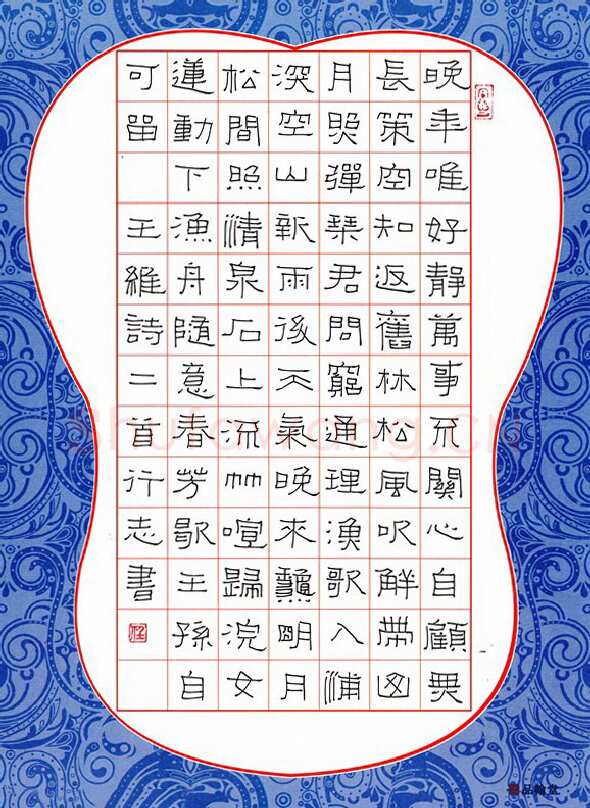 晚年唯好靜萬事不關心自顧無
長策空知返舊林松風吹解帶山
月照彈琴君問窮通理漁歌入浦
深空山新雨後天氣晚來龝明月
松間照清泉石上流竹喧歸浣女
蓮動下漁舟隨意春芳歇王孫自
可留 王維詩二首行志書
shufawang.cn
品翰堂